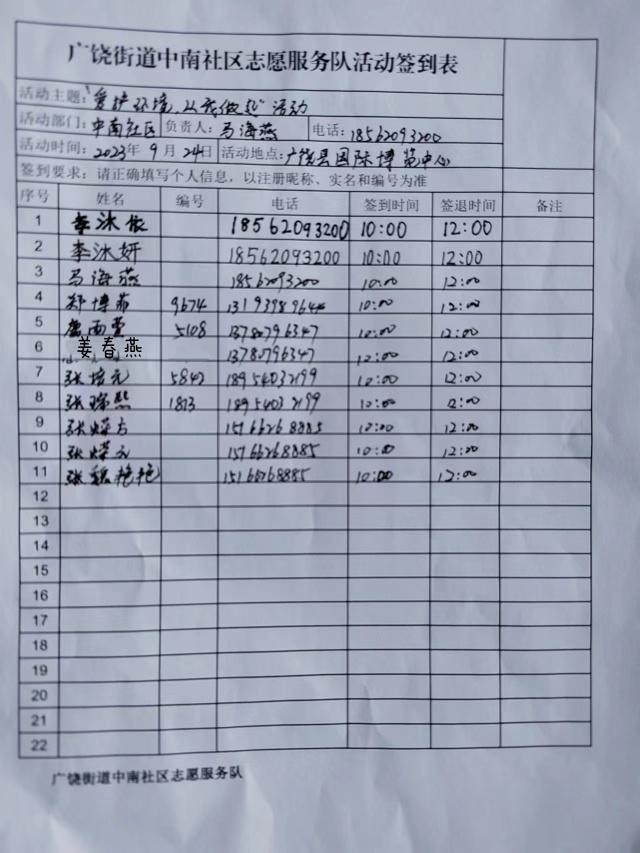 广饶街道中南社区志愿服务队活动签到表
活动主题：“爱护环境，从我做起”活动
活动部门：中南社区 负责人：马海燕 电话：18562093200
活动时间：2023年9月24日 活动地点：广饶县国际博览中心
签到要求：请正确填写个人信息，以注册昵称、实名和编号为准
序号 姓名 编号 电话 签到时间 签退时间 备注
1 李沐依 18562093200 10:00 12:00
2 李沐妍 18562093200 10:00 12:00
3 马海燕 18562093200 10:00 12:00
4 郑博 9674 13193989644 10:00 12:00
5 西萱 5108 13780796347 10:00 12:00
6 姜春燕 13780796347 12:00 12:00
7 张培元 5842 18954032199 10:00 12:00
8 张 1813 18954032199 12:00 12:00
9 张 15766268885 10:00 12:00
10 张 15766268885 10:00 12:00
11 张 艳艳 15166268885 10:00 12:00
12
13
14
15
16
17
18
19
20
21
22
广饶街道中南社区志愿服务队